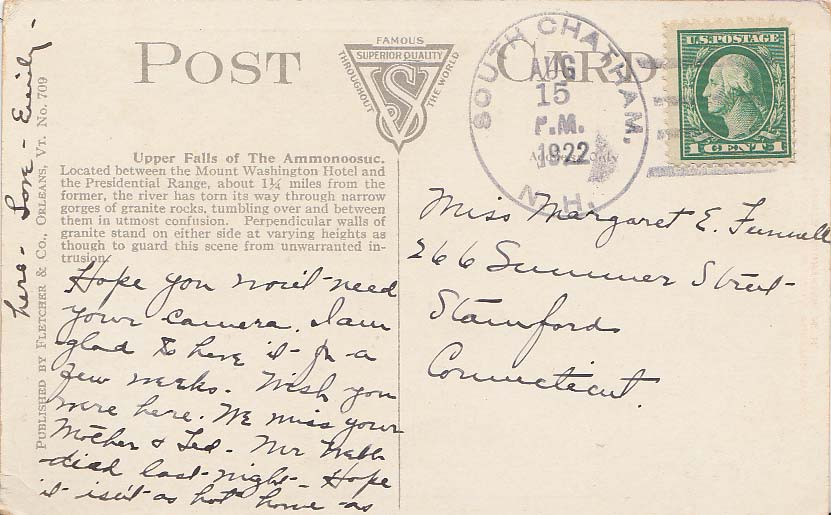 POST CARD
FAMOUS
SUPERIOR QUALITY
THROUGHOUT THE WORLD
S
SOUTH CHATHAM, N.H.
AUG
15
P.M.
1922
U.S. POSTAGE
1 CENT 1
Address Only
Upper Falls of The Ammonoosuc.
Located between the Mount Washington Hotel and
the Presidential Range, about 1¼ miles from the
former, the river has torn its way through narrow
gorges of granite rocks, tumbling over and between
them in utmost confusion. Perpendicular walls of
granite stand on either side at varying heights as
though to guard this scene from unwarranted in-
trusion.
Hope you won't need
your camera. I am
glad to have it for a
few weeks. Wish you
were here. We miss your
Mother & Ted. Mr Webb
died last night - Hope
it isn't as hot home as
here - Love - Emily -
PUBLISHED BY FLETCHER & CO., ORLEANS, VT. No. 709
Miss Margaret E. Funnell
266 Summer Street
Stamford
Connecticut.